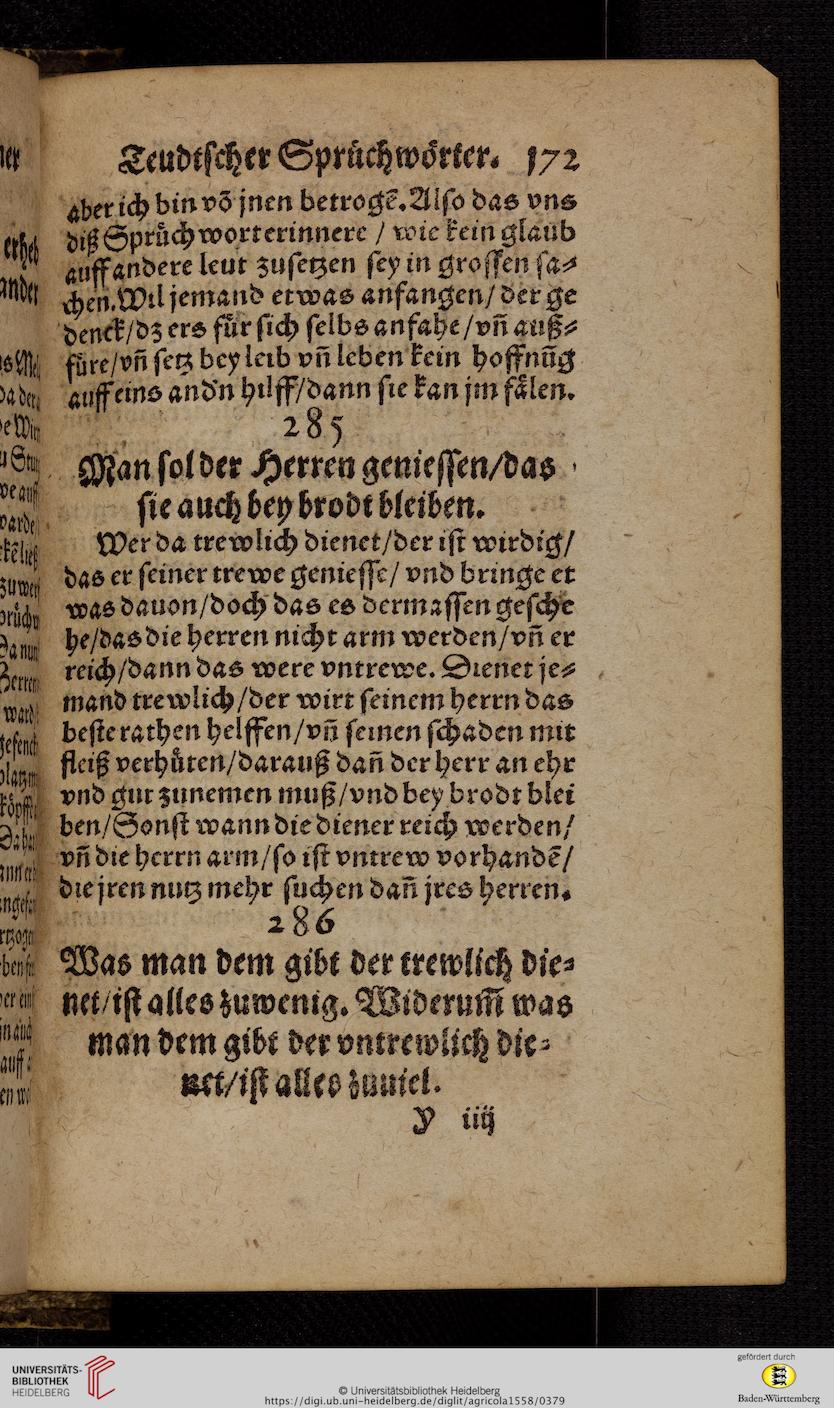 Teudtscher Sprüchwörter. 172
aber ich bin võ jnen betrogẽ. Also das vns
diß Sprüchwort erinnere / wie kein glaub
auff andere leut zusetzen sey in grossen sa⸗
chen. Wil jemand etwas anfangen/ der ge
denck/dz ers für sich selbs anfahe/vñ auß⸗
füre/vñ setz bey leib vñ leben kein hoffnũg
auff eins and'n hilff/dann sie kan jm fälen.
285
Man sol der Herren geniessen/das
sie auch bey brodt bleiben.
Wer da trewlich dienet/der ist wirdig/
das er seiner trewe geniesse/ vnd bringe et
was dauon/doch das es dermassen gesche
he/das die herren nicht arm werden/vñ er
reich/dann das were vntrewe. Dienet je⸗
mand trewlich/der wirt seinem herrn das
beste rathen helffen/vñ seinen schaden mit
fleiß verhüten/darauß dañ der herr an ehr
vnd gut zunemen muß/vnd bey brodt blei
ben/Sonst wann die diener reich werden/
vñ die herrn arm/so ist vntrew vorhandẽ/
die jren nutz mehr suchen dañ jres herren.
286
Was man dem gibt der trewlich die⸗
net/ist alles zuwenig. Widerum̃ was
man dem gibt der vntrewlich die⸗
net/ist alles zuuiel.
Y iiij
UNIVERSITÄTS-
BIBLIOTHEK
HEIDELBERG
© Universitätsbibliothek Heidelberg
https://digi.ub.uni-heidelberg.de/diglit/agricola1558/0379
gefördert durch
Baden-Württemberg